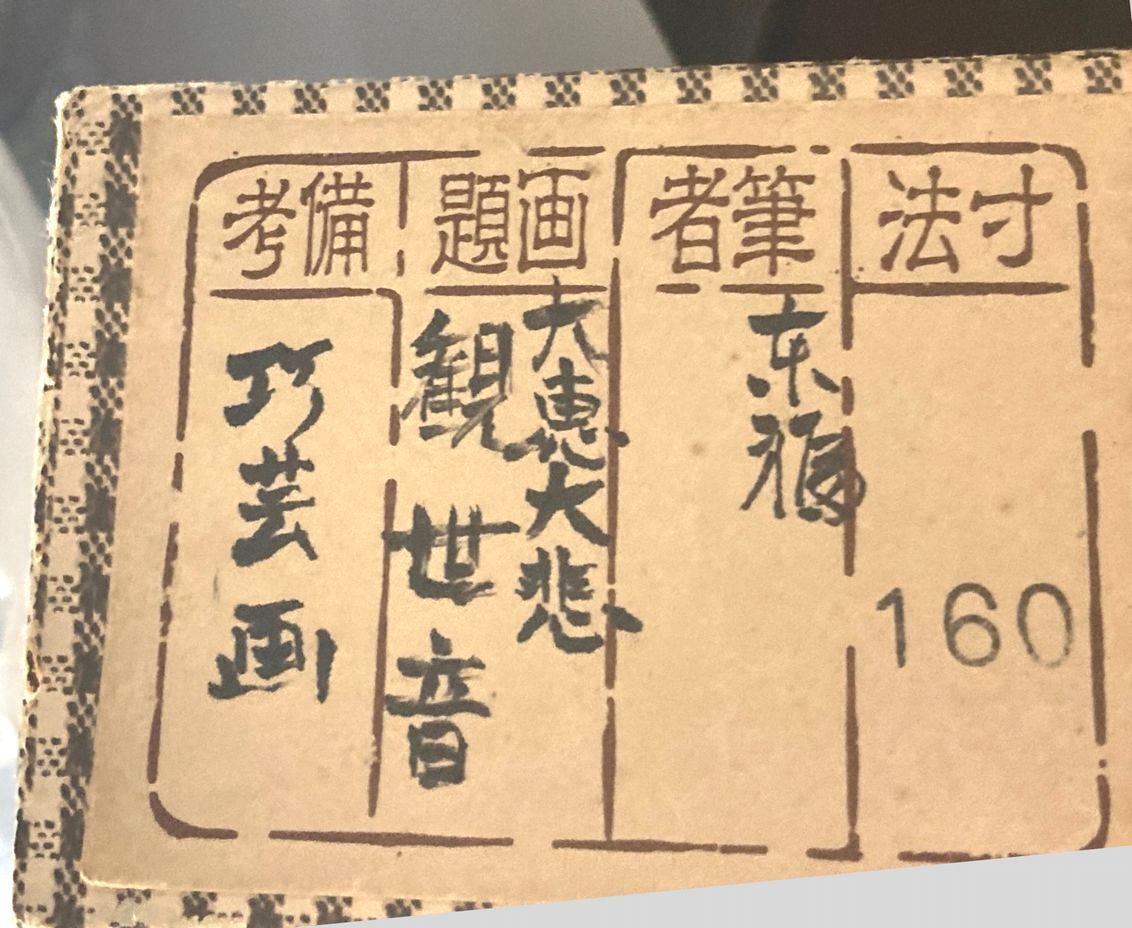 寸法
160
筆者
东
画題
大恵大悲
観世音
備考
巧芸画